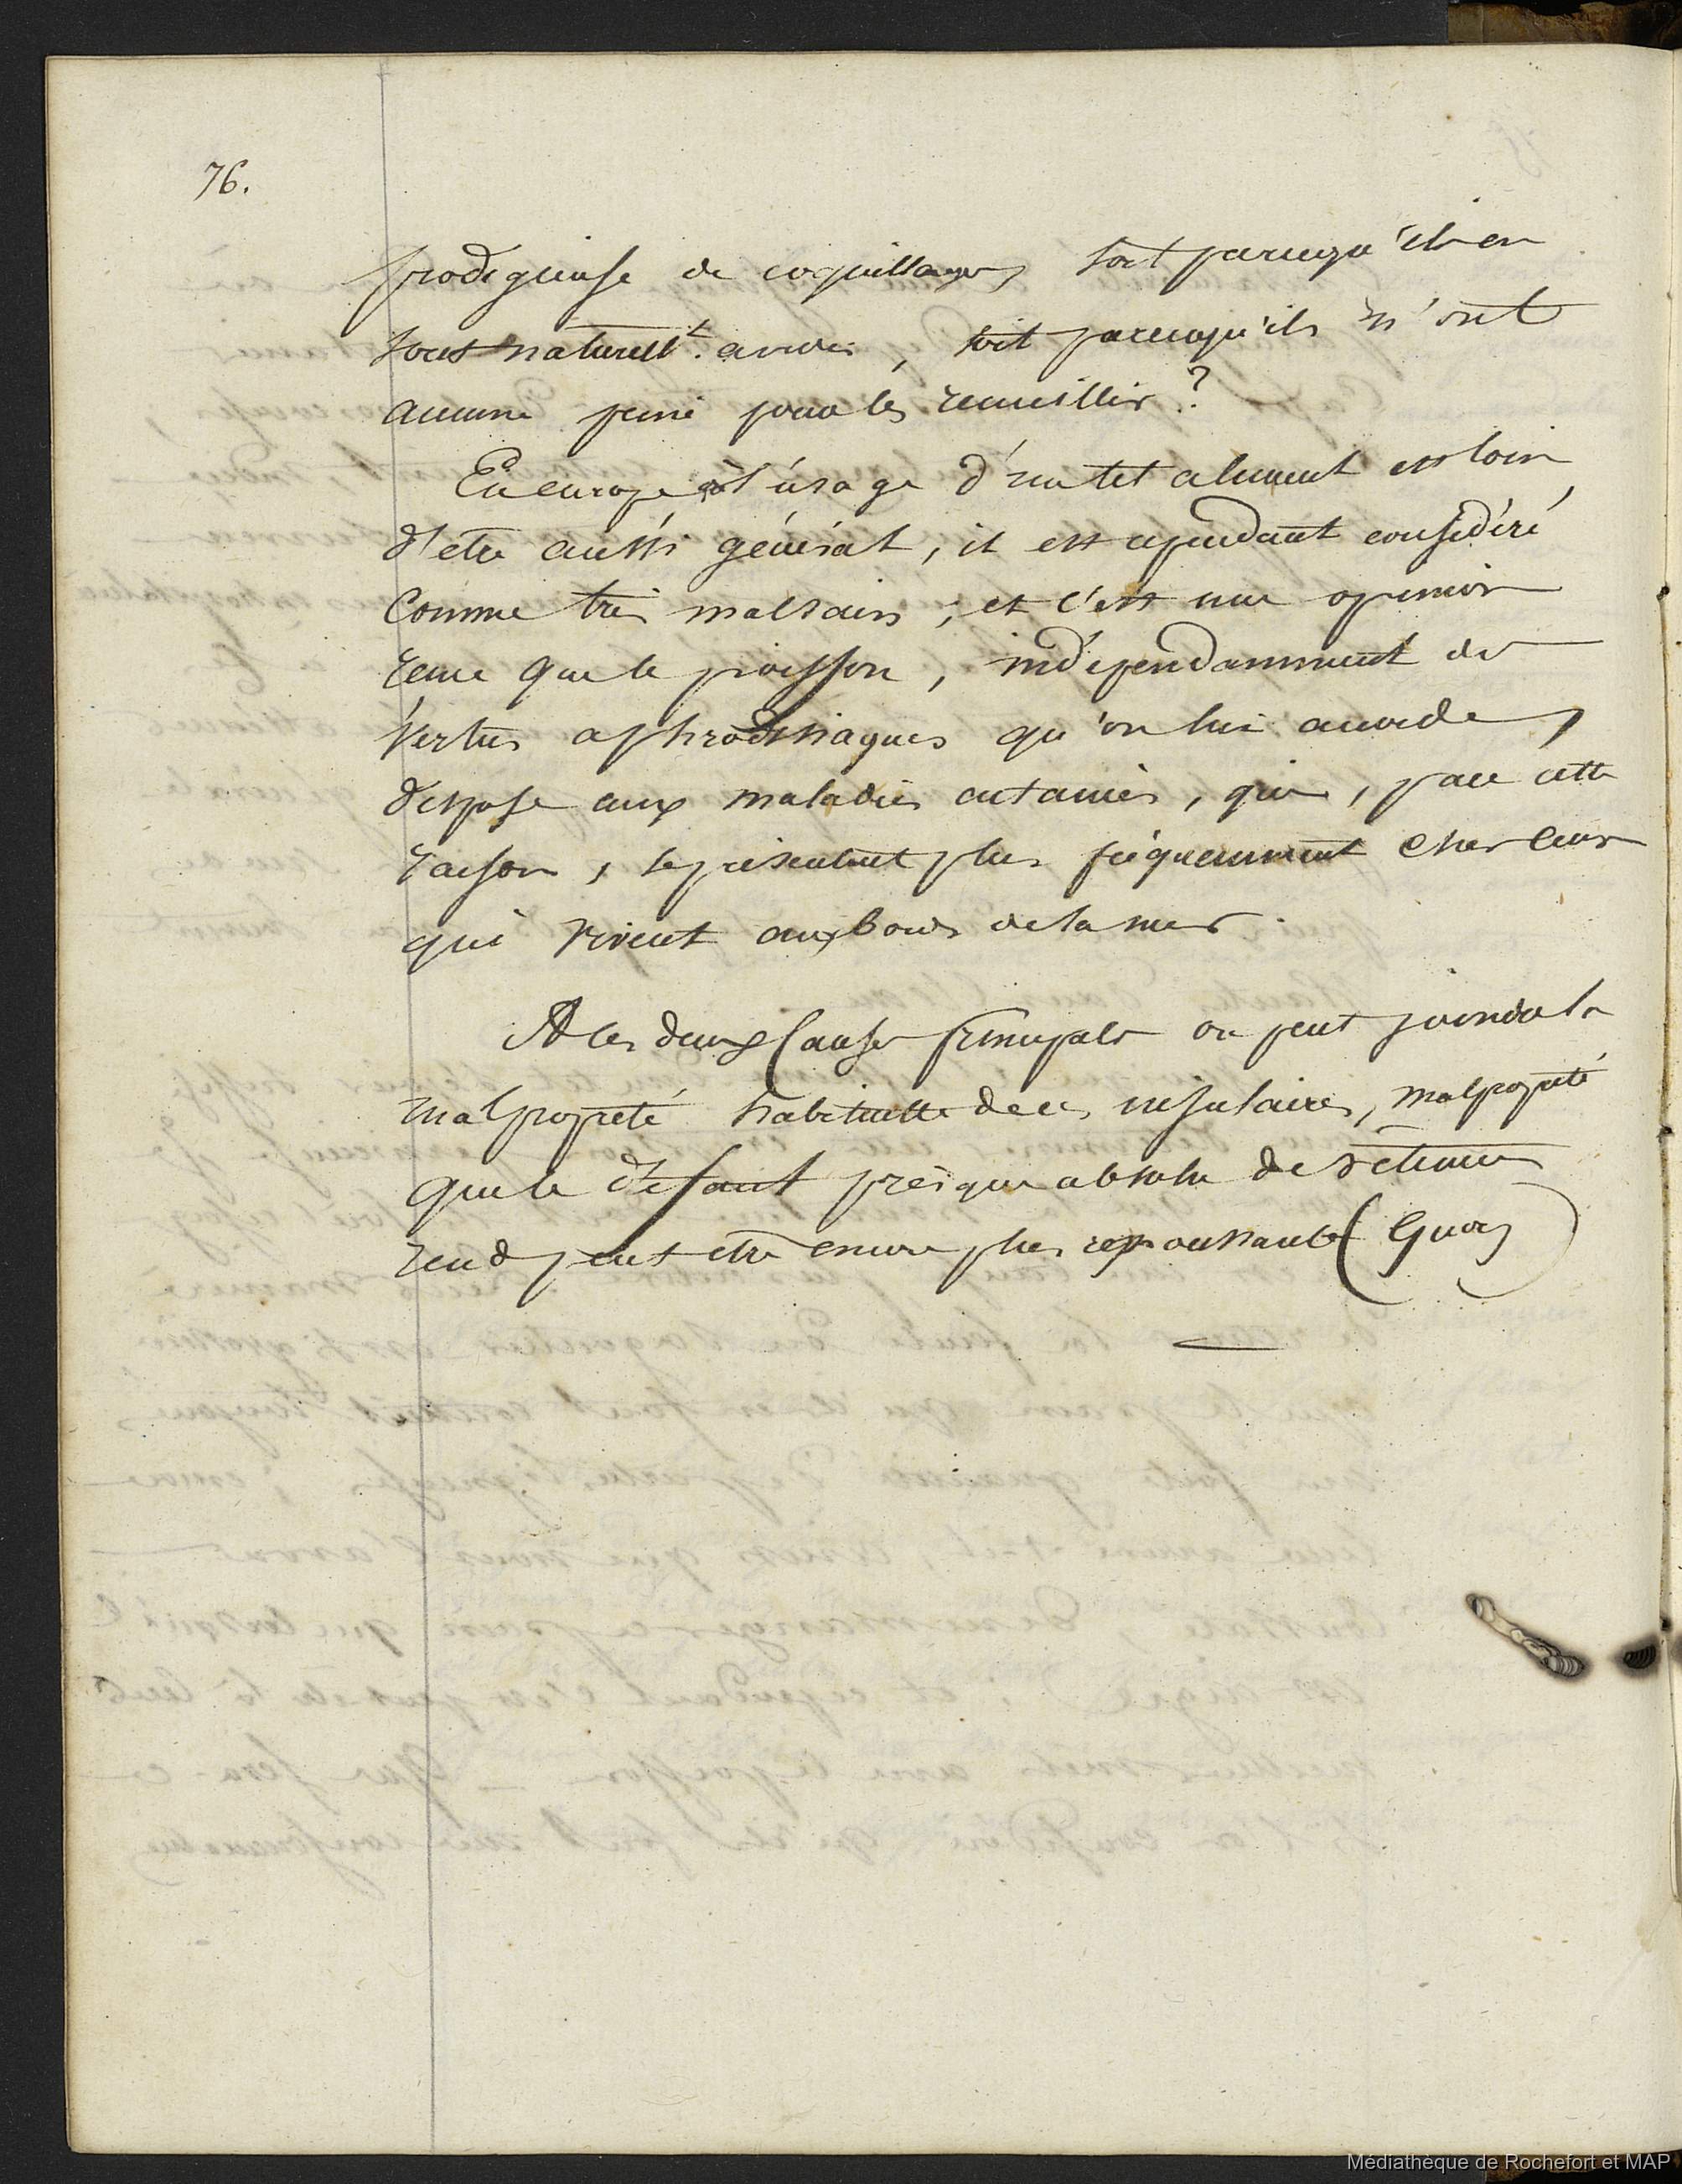 76.
prodigieuse de coquillages soit parcequ'ils en
sont naturell.t avides, soit parcequ'ils n'ont
aucune peine pour les recueillir ?
En europe l'usage d'un tel aliment est loin
d'etre aussi général, il est cependant considéré
Comme très malsain ; et c'est une opinion
recue que le poisson, indépendamment des
Vertus aphrodisiaques qu'on lui accorde,
dispose aux maladies cutanées, qui, par cette
raison, se présentent plus fréquemment chez ceux
qui vivent aux bords de la mer.
A ces deux Causes principales on peut joindre la
malpropreté habituelle de ces insulaires, malpropreté
que le défaut presque absolu de vêtemens
rend peut etre encore plus repoussante (Quoy)
Médiathèque de Rochefort et MAP